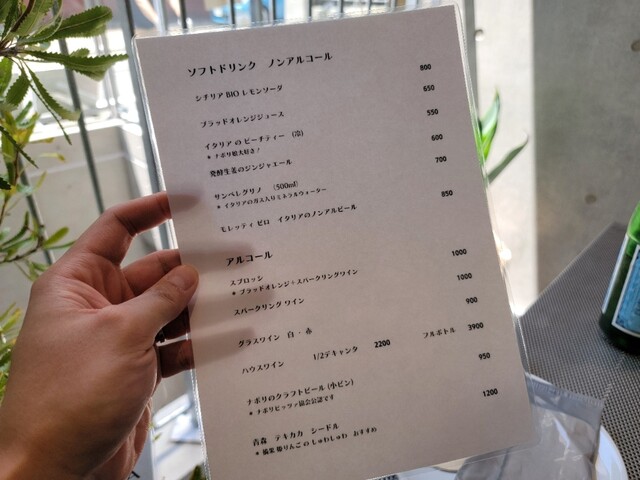 ソフトドリンク ノンアルコール
シチリア BIO レモンソーダ 800
ブラッドオレンジジュース 650
イタリアの ピーチティー (冷) 550
* ナポリ娘大好き!
発酵生姜のジンジャエール 600
サンペレグリノ (500ml) 700
* イタリアのガス入りミネラルウォーター
モレッティ ゼロ イタリアのノンアルビール 850
アルコール
スプロッシ 1000
* ブラッドオレンジ+スパークリングワイン
スパークリング ワイン 1000
グラスワイン 白・赤 900
ハウスワイン 1/2デキャンタ 2200 フルボトル 3900
ナポリのクラフトビール (小ビン) 950
* ナポリピッツァ協会公認です
青森 テキカカ シードル 1200
* 摘果 姫りんごの しゅわしゅわ おすすめ